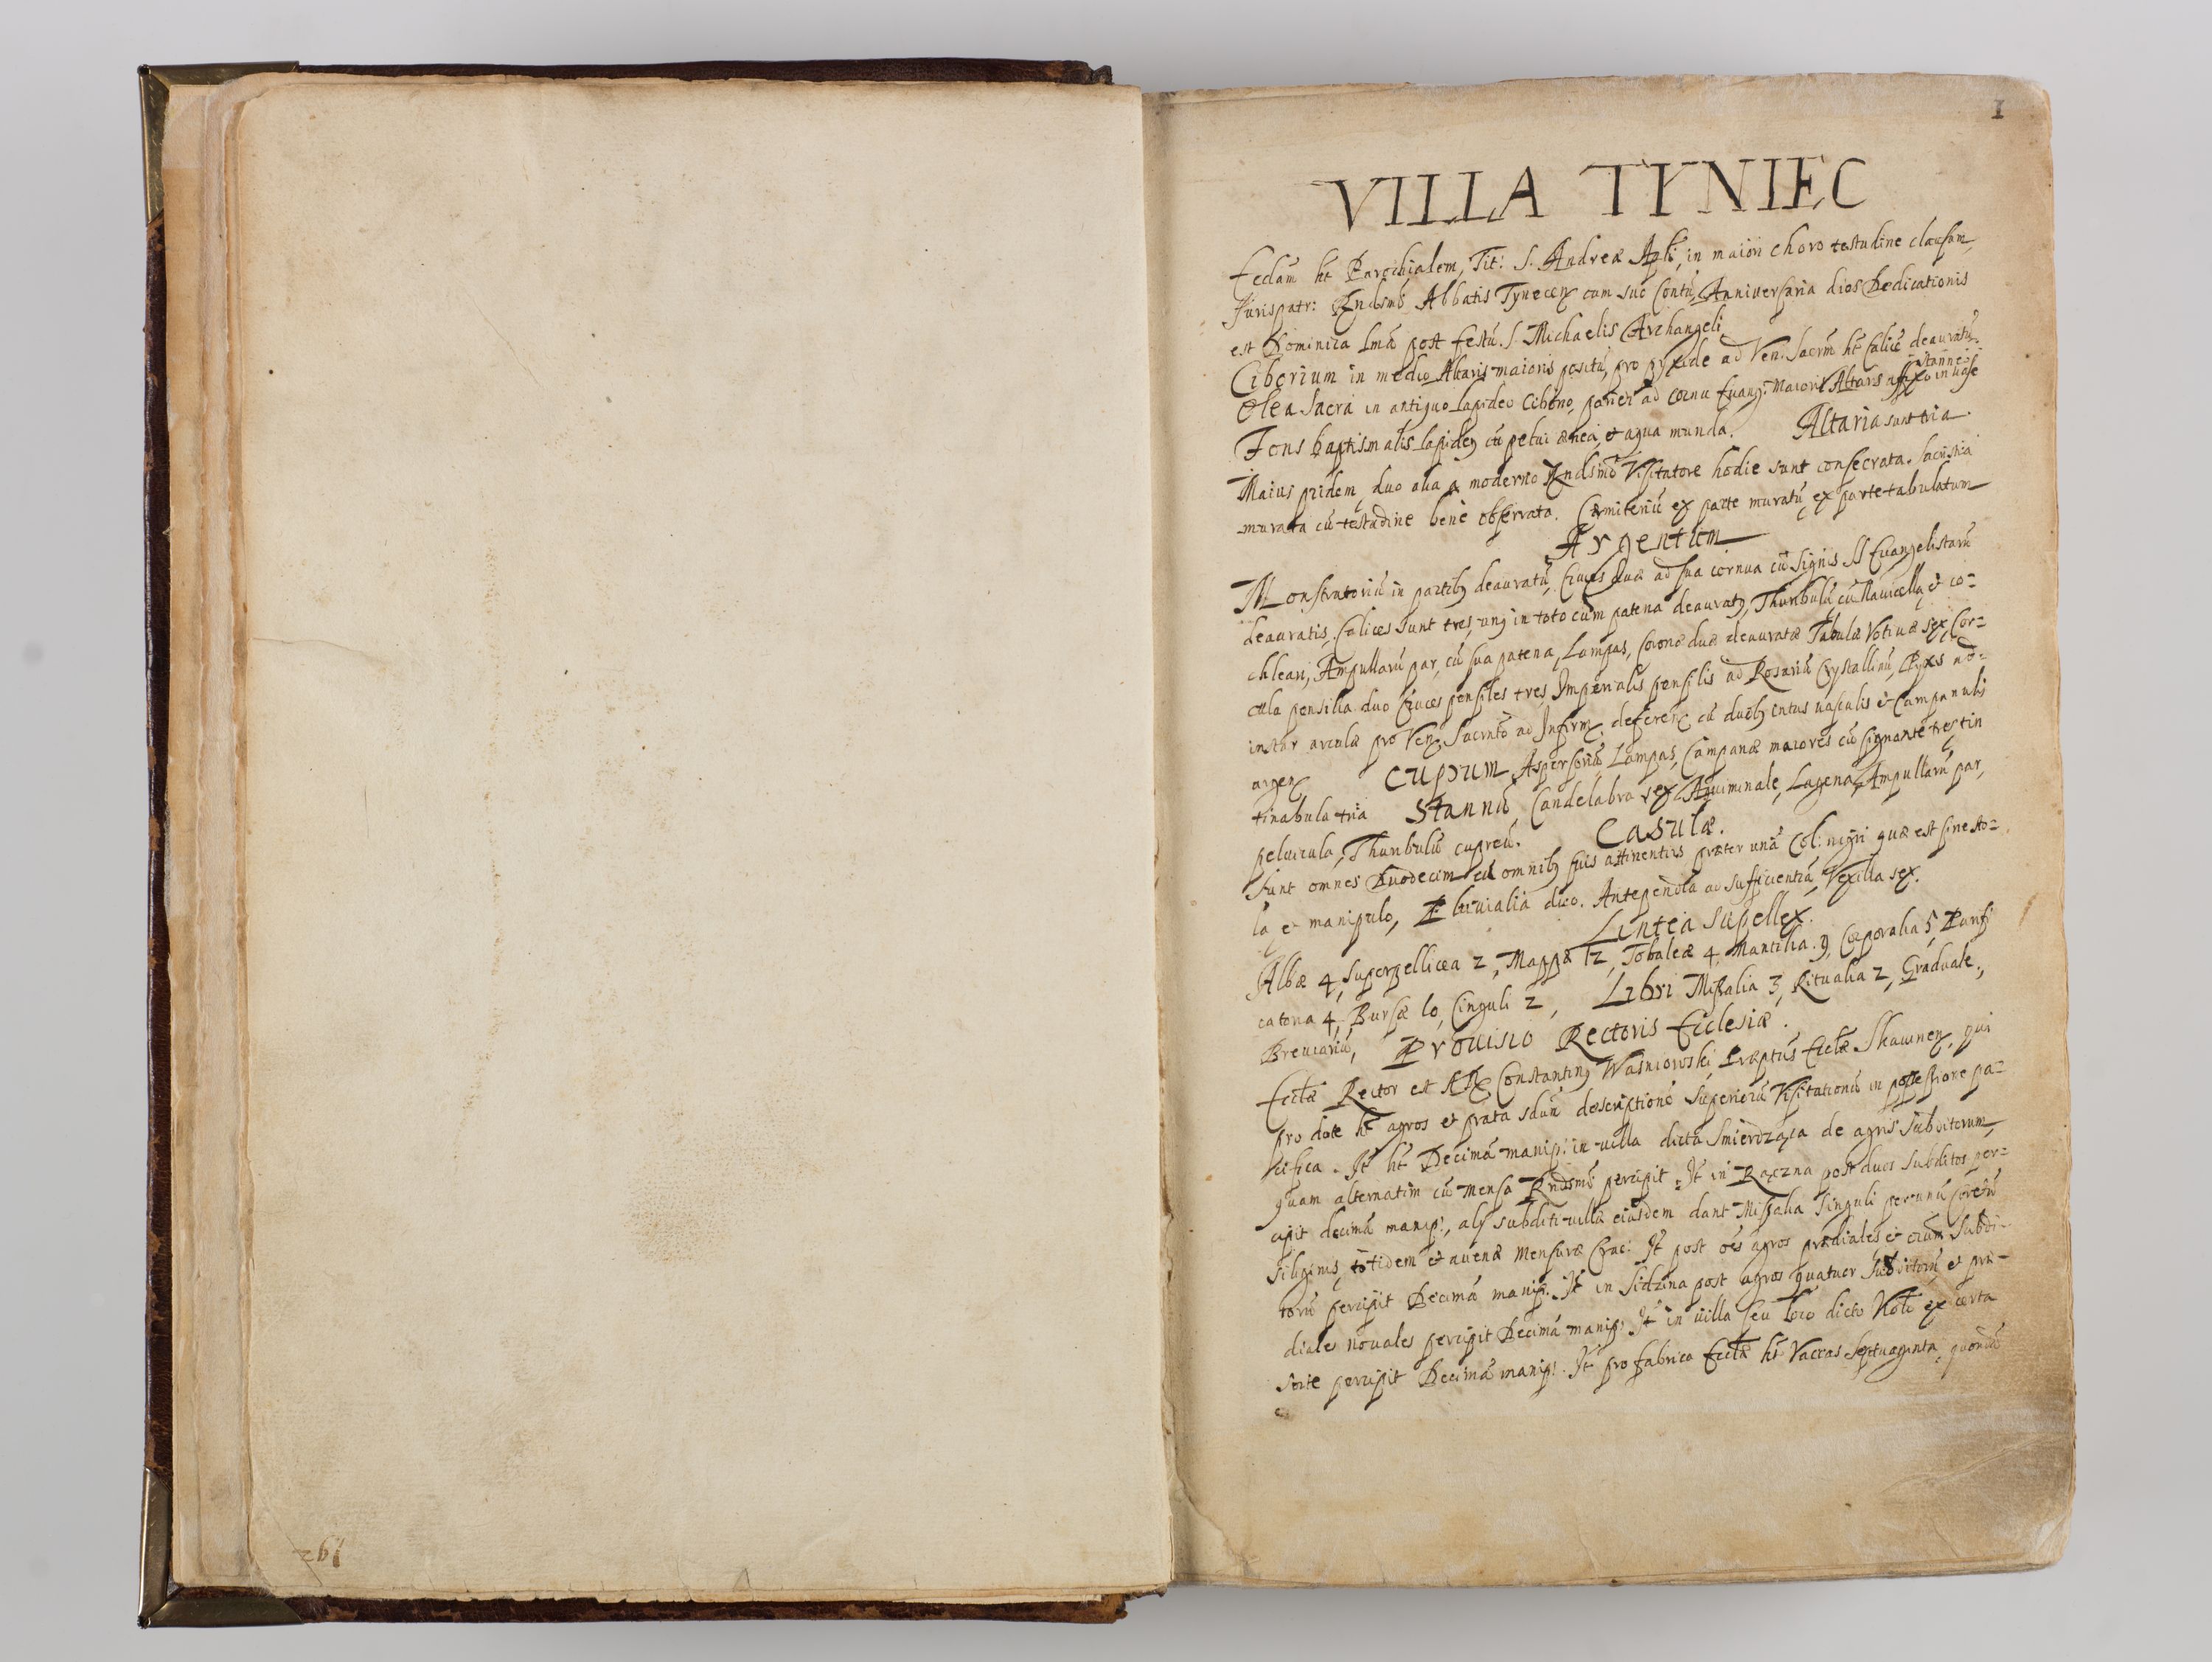 1
VILLA TYNIEC
Ecclam ht Parochialem, Tit: S. Andreæ Apli, in maiori choro testudine clausam,
Jurispatr: Rndsmi Abbatis Tynecen cum suo Contū, Anniversaria dies Dedicationis
est Dominica 1ma post festū S. Michaelis Archangeli
Ciborium in medio Altaris maioris positū, pro pyxide ad Ven: Sacrm ht Calicē deauratū.
Olea Sacra in antiquo lapideo Cibrio, parieti ad cornu Euang: Maioris Altaris affixo in vase
stanneo
Fons baptismalis lapideq cū pelui ænea, et aqua munda. Altaria sunt tria.
Maius pridem, duo alia a moderno Rndsmo Visitatore hodie sunt consecrata. Sacristia
murata cū testudine bene obserata. Cæmiteriū ex parte muratū, ex parte tabulatum
Argentum
Monstratoriū in partibq deauratū, Cruces duæ ad sua cornua cū signis SS Euangelistarū
deauratis, Calices sunt tres, unq in toto cum patena deauratq, Thuribulū cū Nauicella et co=
chleari, Ampullarū par, cū sua patena, Lampas, Coronæ duæ deauratæ Tabulæ Votiuæ sex, Cor=
cula pensilia duo Cruces pensiles tres, Imperialis pensilis ad Rosariū Crystallinū, Pyxis no=
instar arculæ pro Ven: Sacrnto ad Infirm: deferen: cū duobq intus vasculis et Campanulis
argen: Cuprum Aspersoriū Lampas, Campanæ maiores cū signante tres tin
tinabula tria Stannū Candelabra sex Aquiminale, Lagena, Ampullarū par,
peluicula, Thuribulū cupreū. Casulæ.
Sunt omnes Duodecim cū omnibq suis attinentiis præter unā Col: nigri quæ est sine sto=
la et manipulo, Pluuialia duo. Antependia ad sufficientiā, Vexilla sex.
Lintea supellex.
Albæ 4, Superpellicea 2, Mappæ 12, Tobaleæ 4, Mantilia 9, Corporalia 5, Purifi
catoria 4, Bursæ 10, Cinguli 2, Libri Missalia 3, Ritualia 2, Graduale,
Breuiariū, Prouisio Rectoris Ecclesiæ.
Ecclæ Rector est AR Constantinq Wasniowski, Præptus Ecclæ Skawinen, qui
pro dote ht agros et prata sdum descriptionē superiorū Visitationū in possessione pa=
cifica. It ht Decimā manip: in villa dicta Smierdzaça de agris subditorum,
quam alternatim cū mensa Rndsmi percipit. It in Rączna post duos subditos per=
cipit decimā manip:, alii subditi villæ eiusdem dant Missalia singuli per unū coretū
siliginis, totidem et auenæ mensuræ Crac: It post oēs agros prædiales et etiam Subdi=
torū percipit Decimā manip: It in Sidzina post agros quatuor Subditorū et præ=
diales nouales percipit Decimā manip: It in villa seu loco dicto Koło ex certa
sorte percipit Decimā manip: It pro fabrica Ecclæ ht Vaccas septuaginta, quondā
192